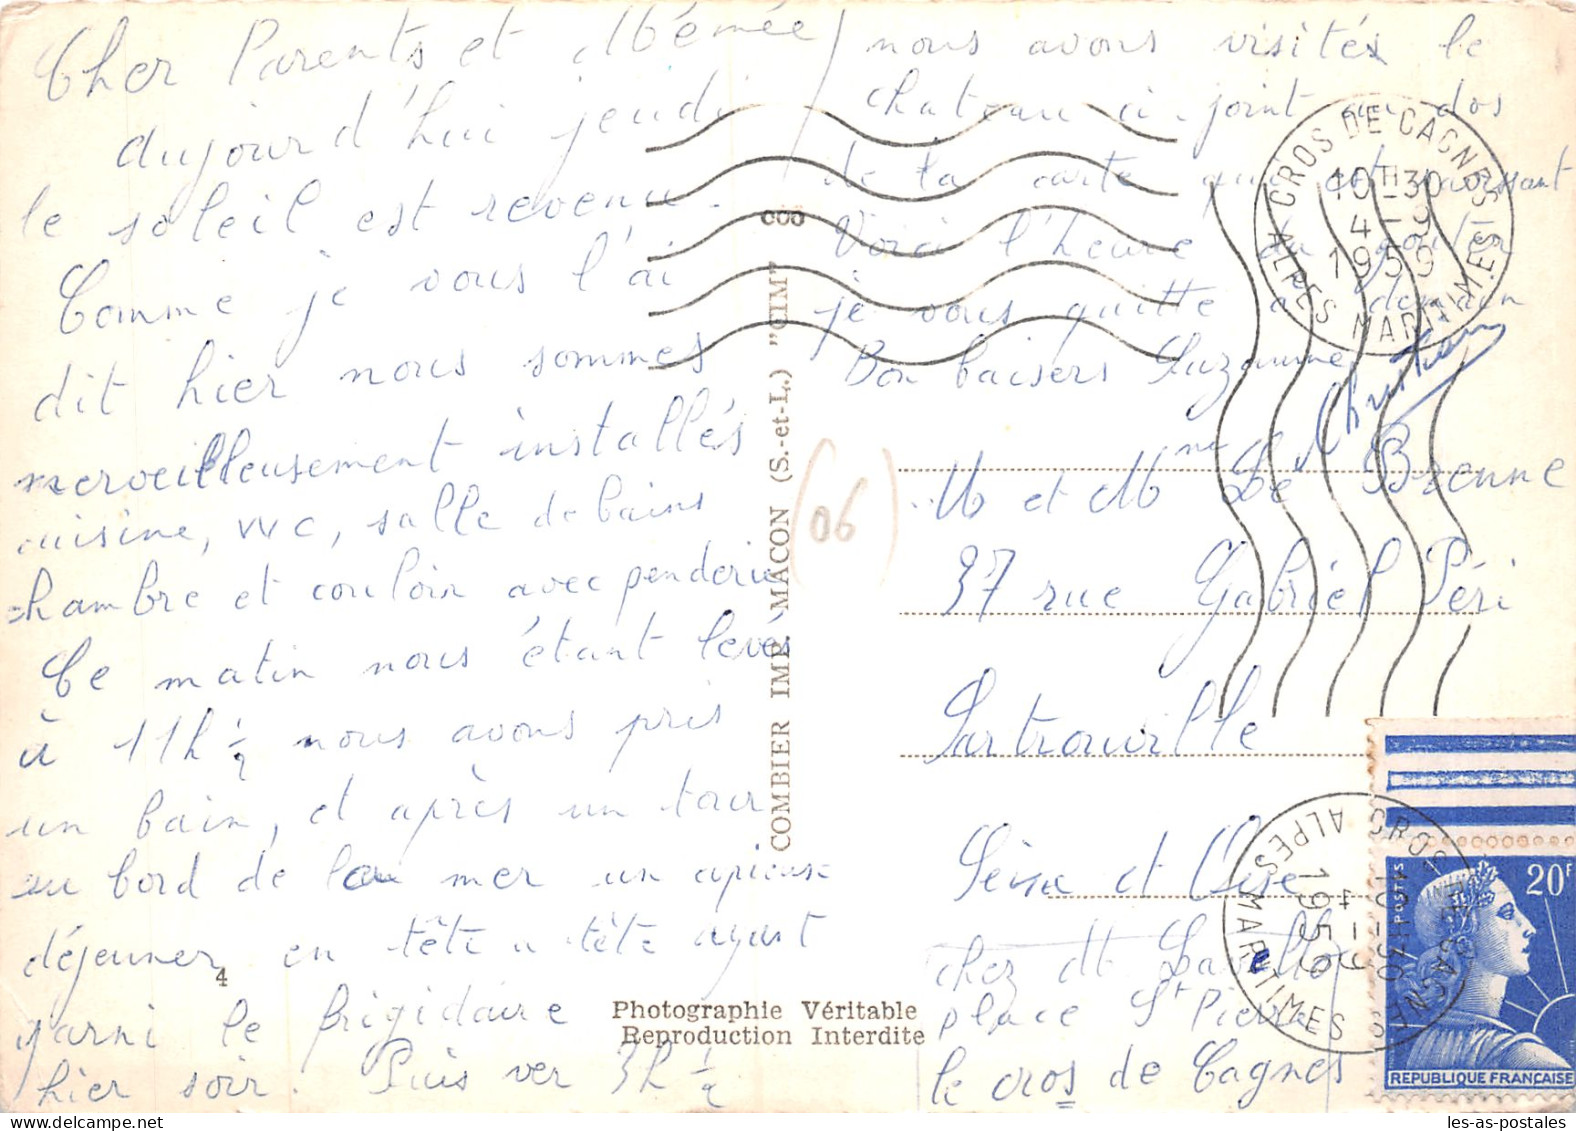 Cher Parents et Mémée
aujourd'hui jeudi
le soleil est revenu.
Comme je vous l'ai
dit hier nous sommes
merveilleusement installés
cuisine, WC, salle de bains
chambre et couloir avec penderie
Ce matin nous étant levés
à 11h 1/2 nous avons pris
un bain, et après un tour
au bord de la mer un
déjeuner en tête a tête ayant
garni le frigidaire
hier soir. Puis ver 3h 1/2
nous avons visités le
chateau ci joint au dos
de la carte qui est
Voici l'heure du goûter
je vous quitte a demain
Bon baisers Suzanne
Christian
M et Mme Le Brenne
37 rue Gabriel Péri
Sartrouville
Seine et Oise
chez M
place St Pierre
le cros de Cagnes
(06)
COMBIER IMP. MACON (S.-et-L.) "CIM"
4
Photographie Véritable
Reproduction Interdite
CROS DE CAGNES
10H30
4-9
1959
ALPES MARITIMES
CROS DE CAGNES
10H30
4-9
1959
ALPES MARITIMES
POSTES
20F
REPUBLIQUE FRANÇAISE
les-as-postales
delcampe.net